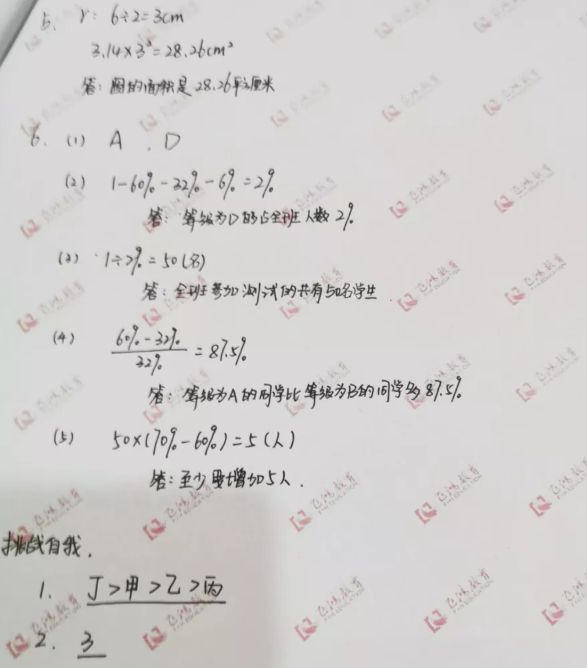 5. r: 6÷2=3cm
3.14×3²=28.26cm²
答: 圆的面积是28.26平方厘米
6. (1) A、D
(2) 1-60%-32%-6%=2%
答: 等级为D的占全班人数2%
(3) 1÷2%=50(名)
答: 全班参加测试的共有50名学生.
(4) (60%-32%)/32%=87.5%
答: 等级为A的同学比等级为B的同学多87.5%
(5) 50×(70%-60%)=5(人)
答: 至少要增加5人.
挑战自我.
1. 丁>甲>乙>丙
2. 3